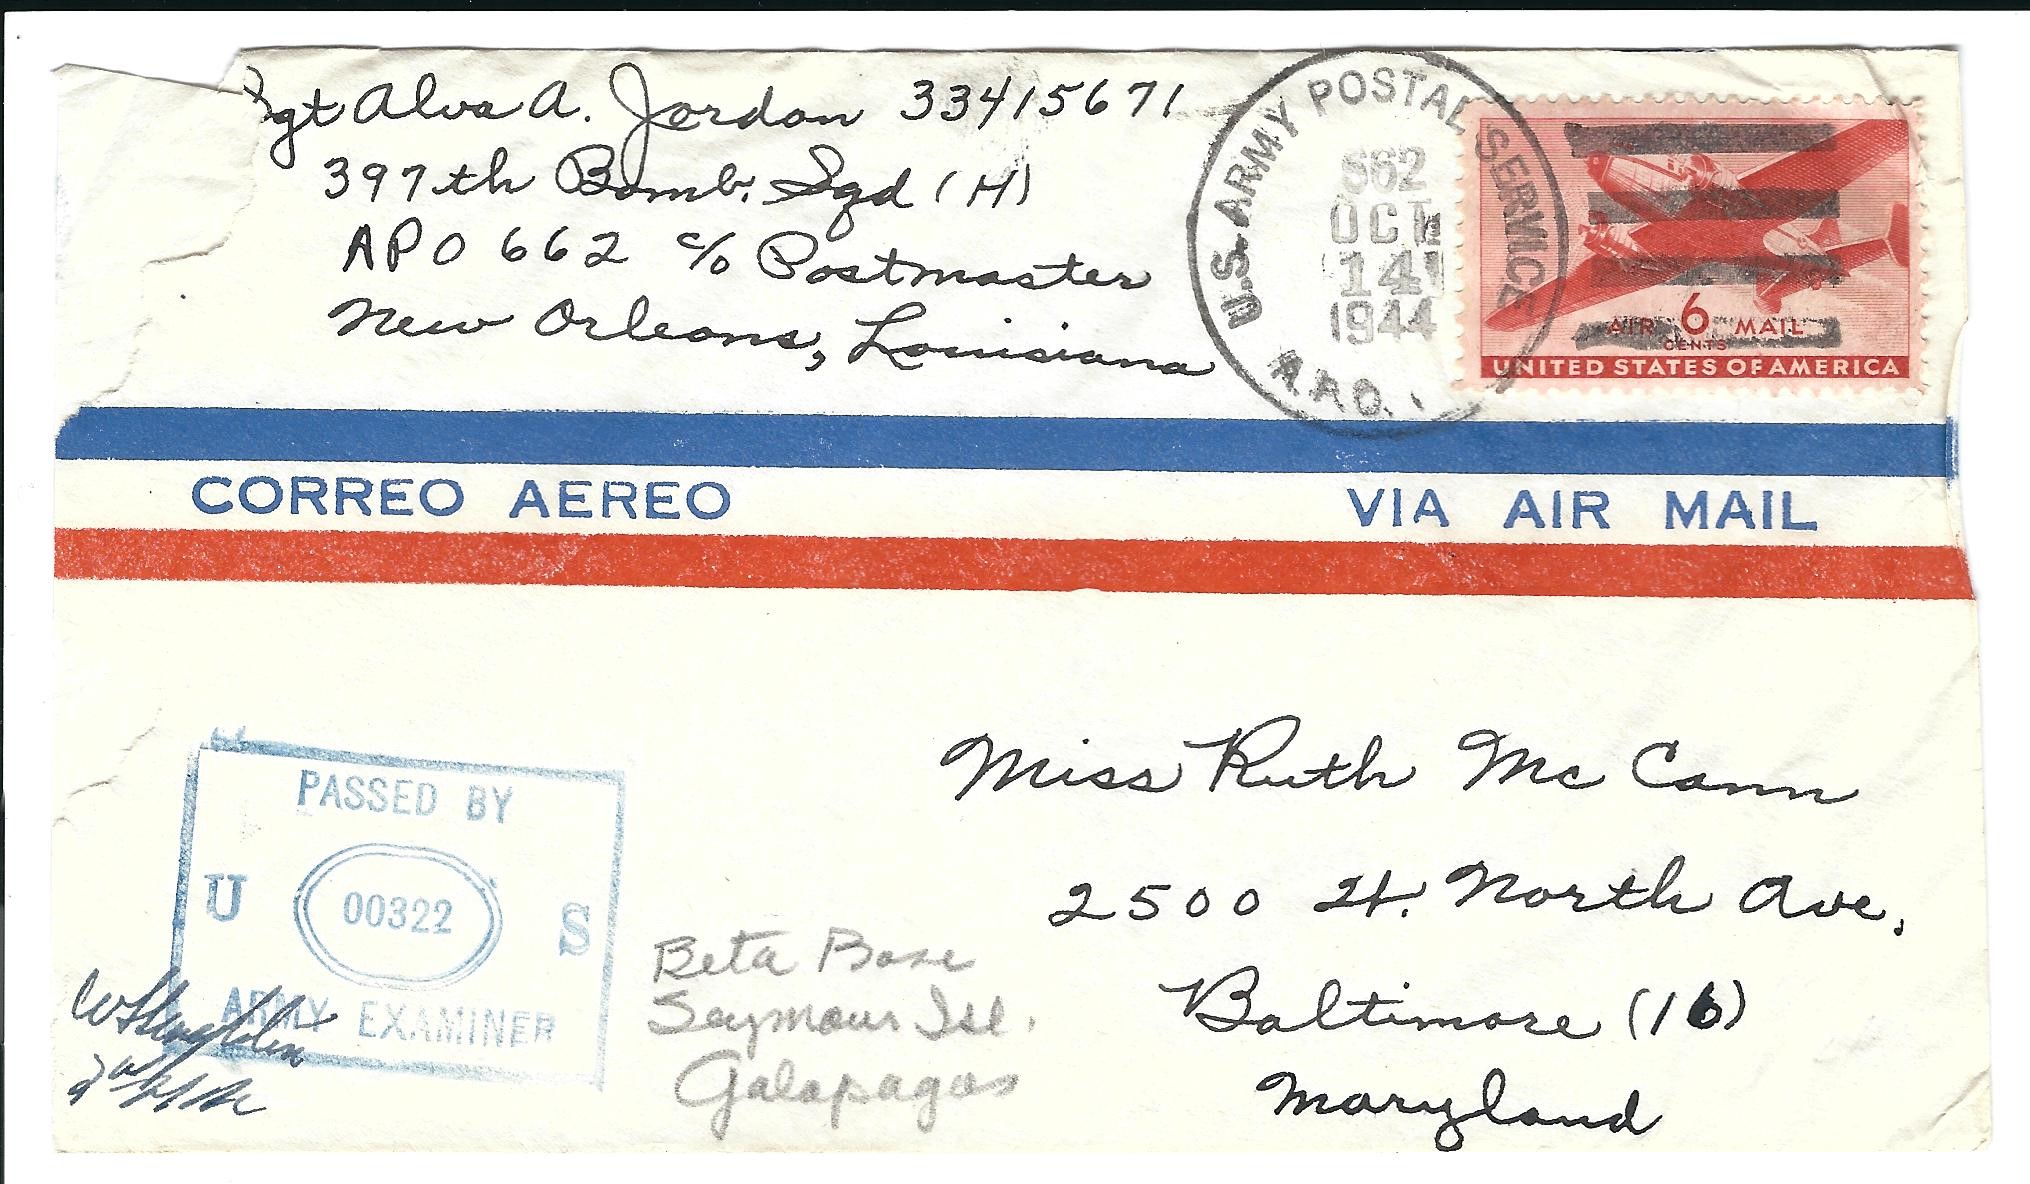 Sgt Alva A. Jordan 33415671
397th Bomb. Sqd (H)
APO 662 c/o Postmaster
New Orleans, Louisiana
U.S. ARMY POSTAL SERVICE
662
OCT
14
1944
A.P.O.
AIR 6 MAIL
CENTS
UNITED STATES OF AMERICA
CORREO AEREO VIA AIR MAIL
PASSED BY
U 00322 S
ARMY EXAMINER
Miss Ruth Mc Cann
2500 W. North Ave.
Baltimore (16)
Maryland
Beta Base
Seymour Isl.
Galapagos